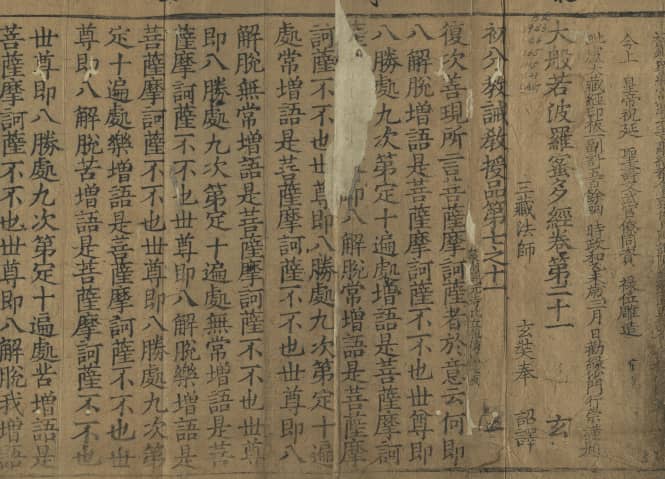 今上 皇帝祝延 聖壽文武官僚同資 祿位雕造
毗盧大藏經印板一副計五百餘函 時政和 歲 月 日勸緣沙門行崇謹題
大般若波羅蜜多經卷第二十一 玄
三藏法師 玄奘奉 詔譯
初分教誡教授品第七之十一
復次善現所言菩薩摩訶薩者於意云何即
八解脫增語是菩薩摩訶薩不不也世尊即
八勝處九次第定十遍處增語是菩薩摩訶
薩 即八解脫常增語是菩薩摩
訶薩不不也世尊即八勝處九次第定十遍
處常增語是菩薩摩訶薩不不也世尊即八
解脫無常增語是菩薩摩訶薩不不也世尊
即八勝處九次第定十遍處無常增語是菩
薩摩訶薩不不也世尊即八解脫樂增語是
菩薩摩訶薩不不也世尊即八勝處九次第
定十遍處樂增語是菩薩摩訶薩不不也世
尊即八解脫苦增語是菩薩摩訶薩不不也
世尊即八勝處九次第定十遍處苦增語是
菩薩摩訶薩不不也世尊即八解脫我增語